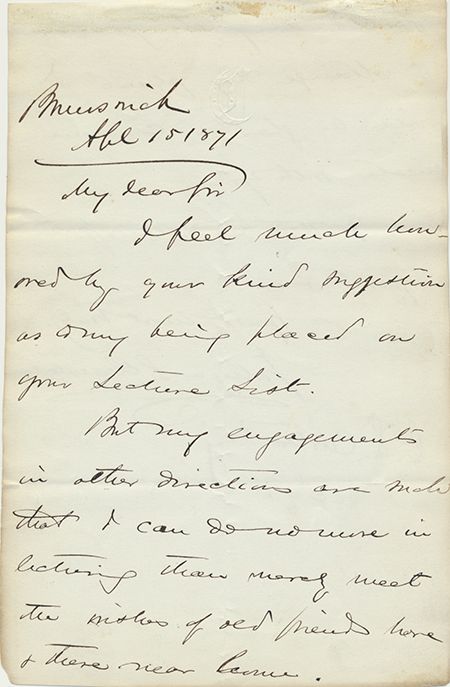 Brunswick
Apl 15 1871
My dear Sir
I feel much hon-
ored by your kind suggestion
as to my being placed on
your Lecture List.
But my engagements
in other directions are such
that I can do no more in
lecturing than merely meet
the wishes of old friends here
& there near home.